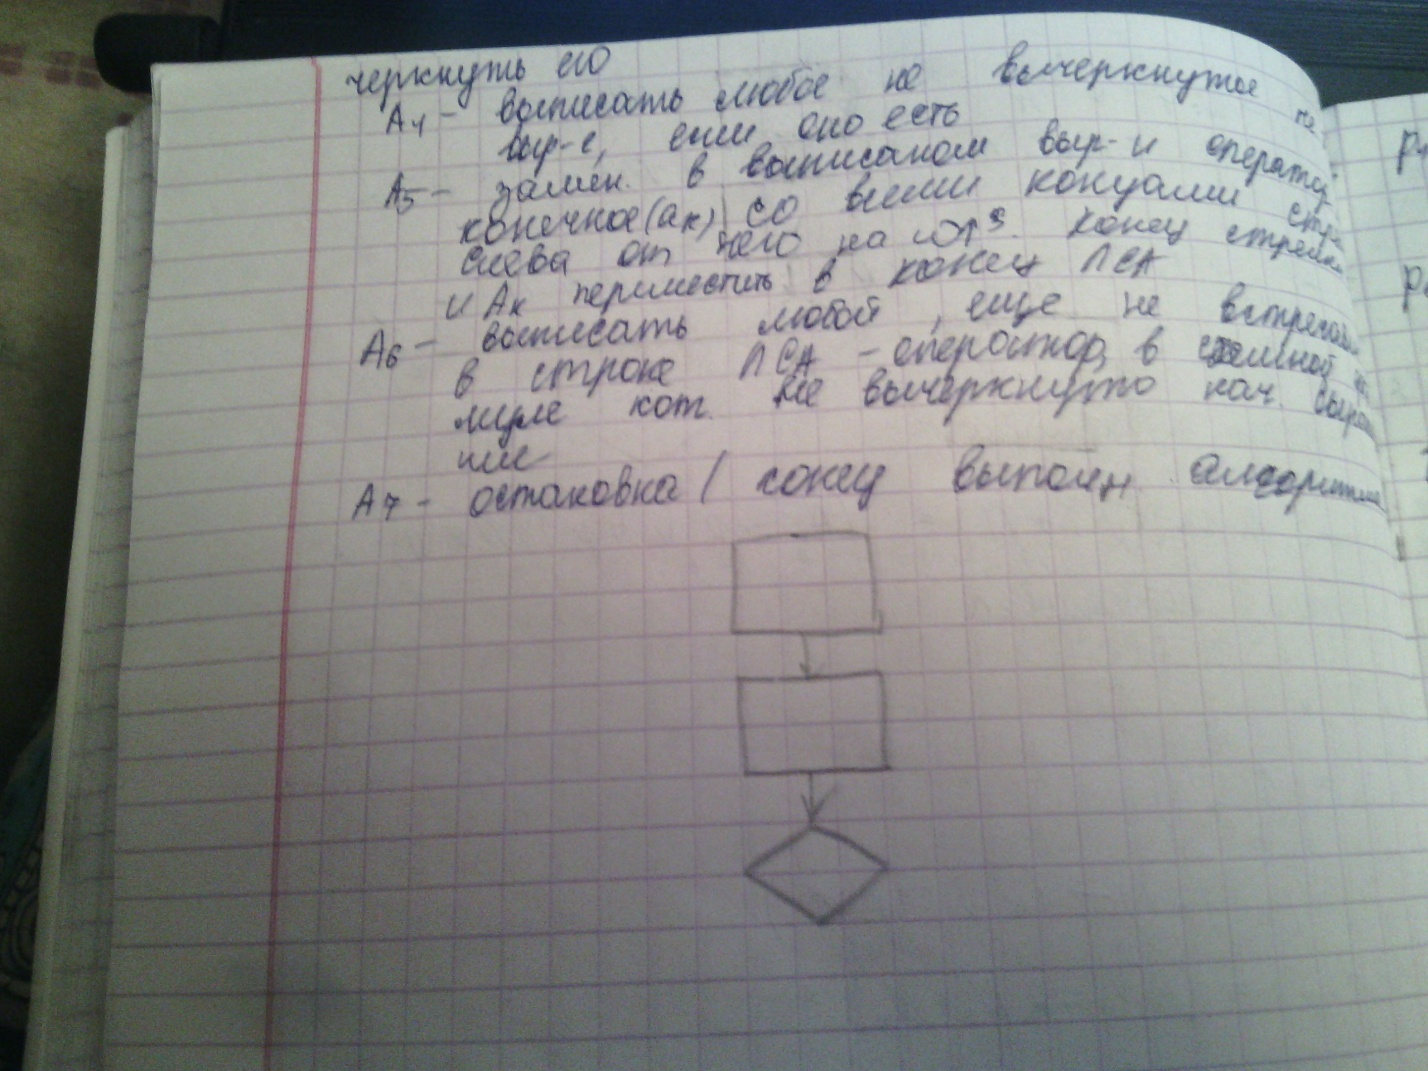 черкнуть его
А4 - выписать любое не вычеркнутое
выр-е, если оно есть
А5 - замен. в выписаном выр-и оператор
конечное (ак) со всеми концами
слева от него на ω↑ конец стрелки
и Ак переместить в конец ЛСА
А6 - выписать любой, еще не
в строке ЛСА - оператор, в
кот. не вычеркнуто нач.
ние
А7 - остановка / конец выполн. алгоритма